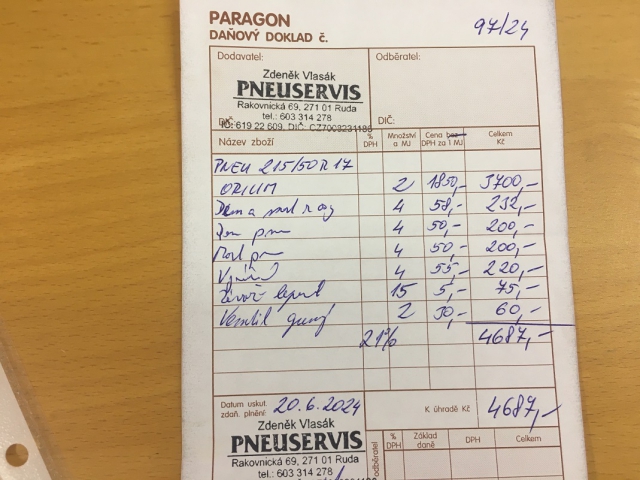 PARAGON
DAŇOVÝ DOKLAD č. 97/24
Dodavatel: Odběratel:
Zdeněk Vlasák
PNEUSERVIS
Rakovnická 69, 271 01 Ruda
tel.: 603 314 278
IČ: 619 22 609, DIČ: DIČ:
Název zboží % DPH Množství a MJ Cena bez DPH za 1 MJ Celkem Kč
PNEU 215/50 R 17
ORIUM 2 1850,- 3700,-
4 58,- 232,-
4 50,- 200,-
4 50,- 200,-
4 55,- 220,-
15 5,- 75,-
Ventil gumý 2 30,- 60,-
21% 4687,-
Datum uskut. zdaň. plnění: 20.6.2024 K úhradě Kč 4687,-
Zdeněk Vlasák
PNEUSERVIS
Rakovnická 69, 271 01 Ruda
tel.: 603 314 278
odběratel % DPH Základ daně DPH Celkem